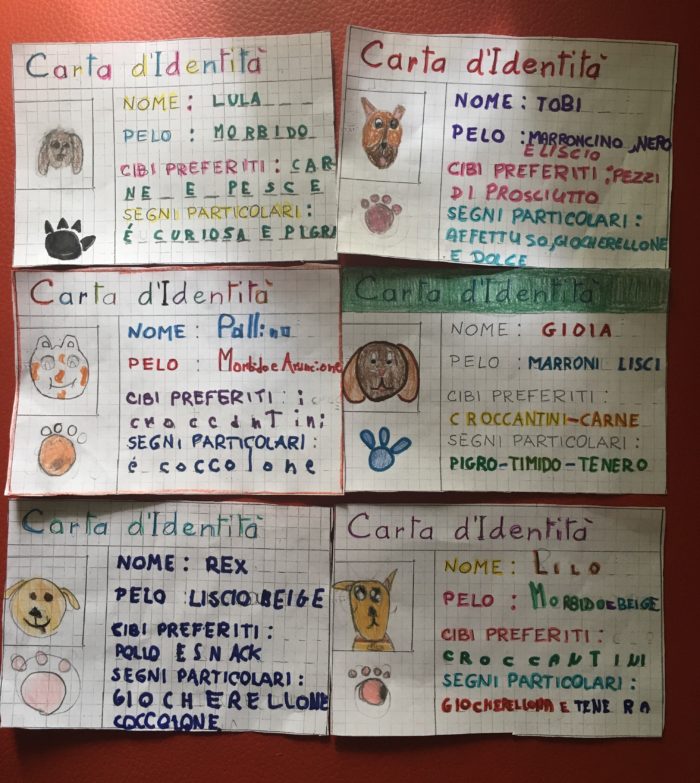 Carta d'Identità
NOME: LULA
PELO: MORBIDO
CIBI PREFERITI: CAR
NE E PESCE
SEGNI PARTICOLARI:
É CURIOSA E PIGRA
Carta d'Identità
NOME: TOBI
PELO: MARRONCINO, NERO
E LISCIO
CIBI PREFERITI: PEZZI
DI PROSCIUTTO
SEGNI PARTICOLARI:
AFFETTUSO, GIOCHERELLONE
E DOLCE
Carta d'Identità
NOME: Pallino
PELO: Morbido e Arancione
CIBI PREFERITI: i
croccantini
SEGNI PARTICOLARI:
é coccolone
Carta d'Identità
NOME: GIOIA
PELO: MARRONI LISCI
CIBI PREFERITI:
CROCCANTINI-CARNE
SEGNI PARTICOLARI:
PIGRO-TIMIDO-TENERO
Carta d'Identità
NOME: REX
PELO: LISCIO BEIGE
CIBI PREFERITI:
POLLO E SNACK
SEGNI PARTICOLARI:
GIOCHERELLONE
COCCOLONE
Carta d'Identità
NOME: LILO
PELO: MORBIDO E BEIGE
CIBI PREFERITI:
CROCCANTINI
SEGNI PARTICOLARI:
GIOCHERELLONA E TENERA